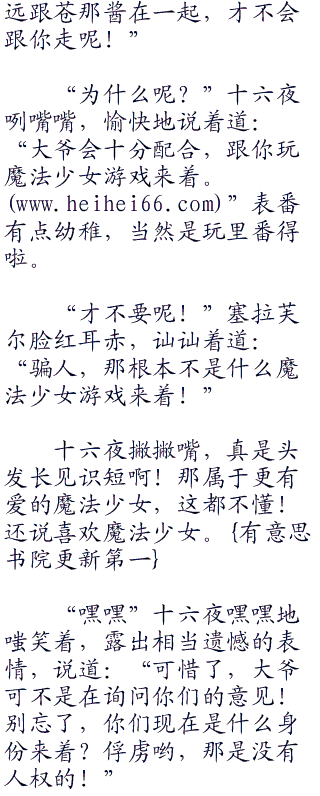 远跟苍那酱在一起，才不会
跟你走呢！”
“为什么呢？”十六夜
咧嘴嘴，愉快地说着道：
“大爷会十分配合，跟你玩
魔法少女游戏来着。
(www.heihei66.com)”表番
有点幼稚，当然是玩里番得
啦。
“才不要呢！”塞拉芙
尔脸红耳赤，讪讪着道：
“骗人，那根本不是什么魔
法少女游戏来着！”
十六夜撇撇嘴，真是头
发长见识短啊！那属于更有
爱的魔法少女，这都不懂！
还说喜欢魔法少女。{有意思
书院更新第一}
“嘿嘿”十六夜嘿嘿地
嗤笑着，露出相当遗憾的表
情，说道：“可惜了，大爷
可不是在询问你们的意见！
别忘了，你们现在是什么身
份来着？俘虏哟，那是没有
人权的！”